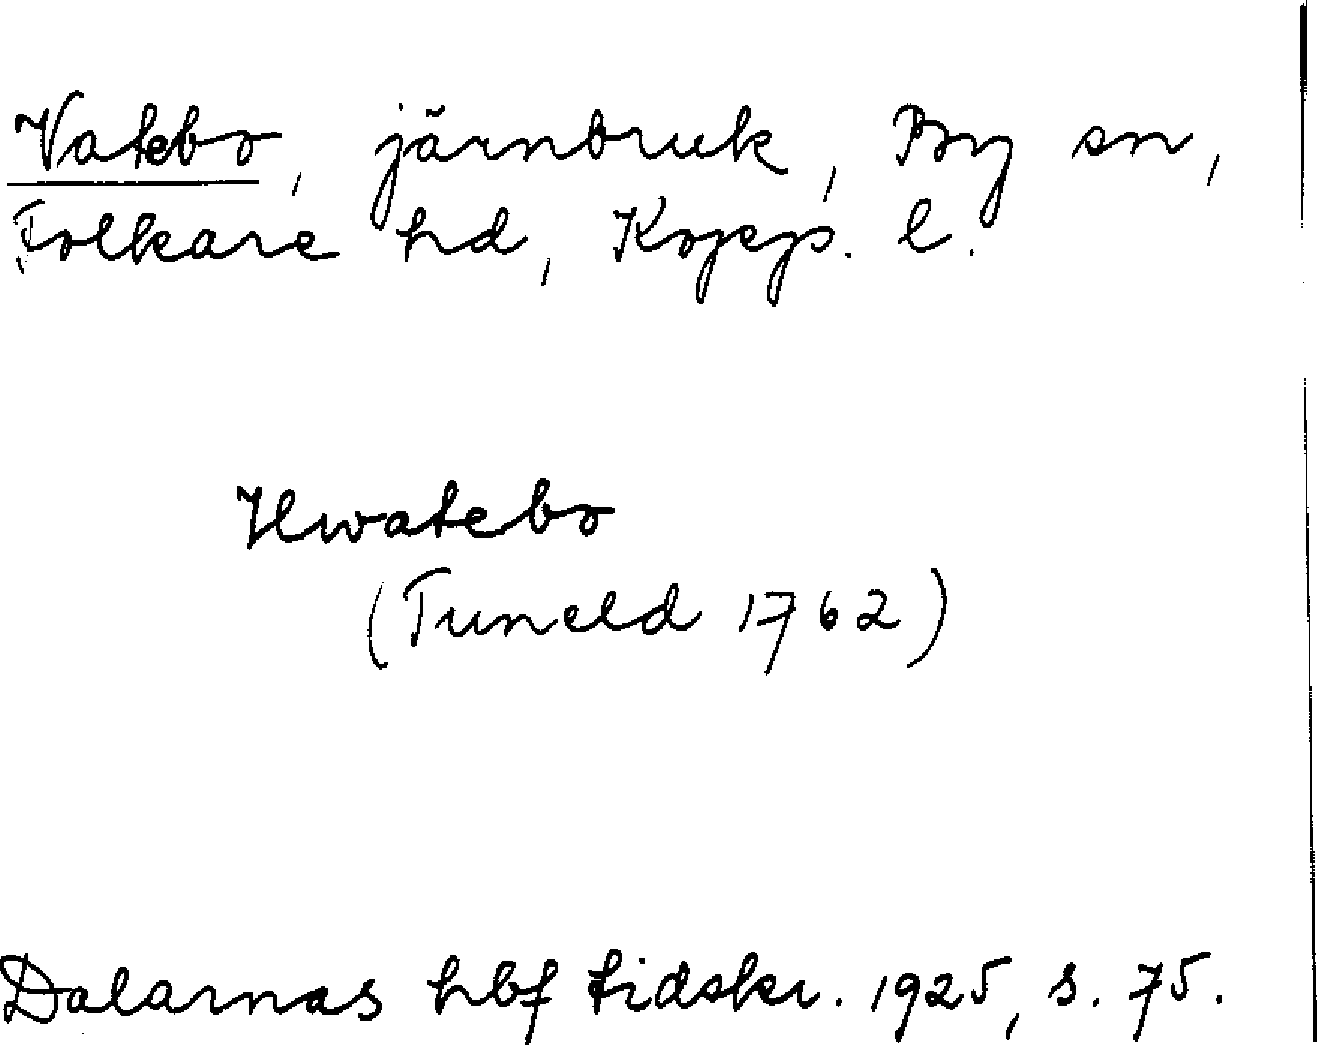 Vatebo, järnbruk, By sn,
Folkare hd, Kopp. l.
Hwatebo
(Tuneld 1762)
Dalarnas hbf tidskr. 1925, s. 75.